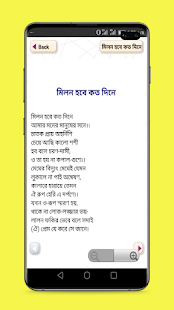 Back
মিলন হবে কত দিনে
মিলন হবে কত দিনে
মিলন হবে কত দিনে
আমার মনের মানুষের সনে।।
চাতক প্রায় অহর্নিশি
চেয়ে আছি কালো শশী
হব বলে চরণ-দাসী,
ও তা হয় না কপাল-গুণে।।
মেঘের বিদ্যুৎ মেঘেই যেমন
লুকালে না পাই অন্বেষণ,
কালারে হারায়ে তেমন
ঐ রূপ হেরি এ দর্পণে।।
যখন ও-রূপ স্মরণ হয়,
থাকে না লোক-লজ্জার ভয়-
লালন ফকির ভেবে বলে সদাই
(ঐ) প্রেম যে করে সে জানে।